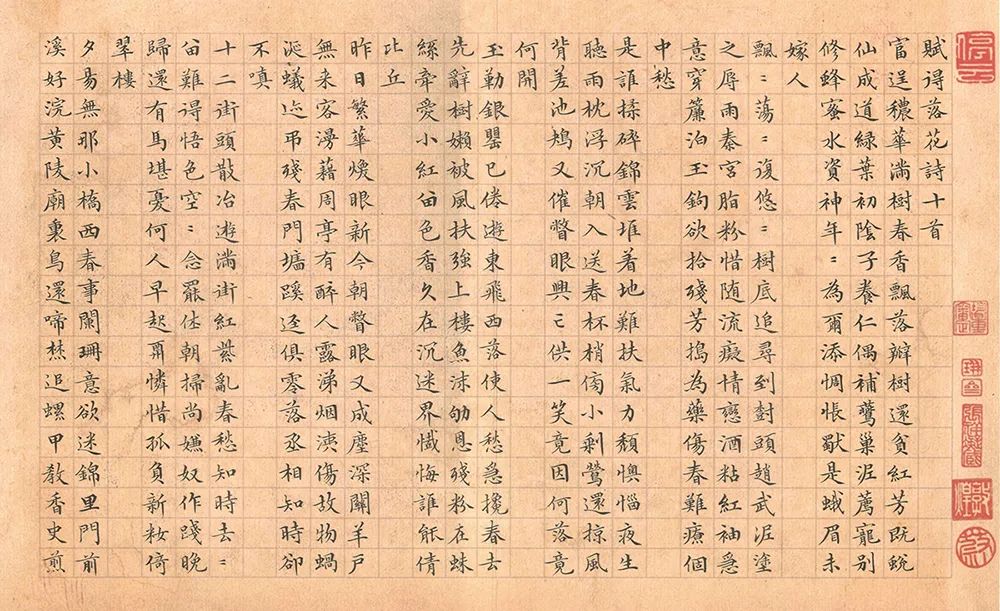 賦得落花詩十首
富逞穠華滿樹春香飄落瓣樹還貧紅芳既蛻
仙成道綠葉初陰子養仁偶補鶯巢泥薦寵別
修蜂蜜水資神年〻為爾添惆悵是蛾眉未
嫁人
飄〻蕩〻復悠〻樹底追尋到樹頭趙武泥塗
之辱雨秦宮脂粉惜隨流癡情戀酒粘紅袖急
意穿簾泊玉鉤欲拾殘芳搗為藥傷春難療個
中愁
是誰揉碎錦雲堆着地難扶氣力頹懊惱夜生
聽雨枕浮沉朝入送春杯梢傍小剩鶯還掠風
背差池鳩又催瞥眼興亡供一笑竟因何落竟
何開
玉勒銀罌已倦遊東飛西落使人愁急攙春去
先辭樹嬾被風扶強上樓魚沫劬恩殘粉在蛛
絲牽愛小紅留色香久在沉迷界懺悔誰能倩
比丘
昨日繁華煥眼新今朝瞥眼又成塵深關羊戶
無来客漫藉周亭有醉人露涕烟洟傷故物蝸
涎蟻迹弔殘春門墻蹊逕俱零落丞相知時卻
不嗔
十二街頭散冶遊滿街紅紫亂春愁知時去〻
留難得悟色空〻念罷休朝掃尚嫌奴作踐晚
歸還有馬堪憂何人早起肩憐惜孤負新妝倚
翠樓
夕昜無那小橋西春事闌珊意欲迷錦里門前
溪好浣黃陵廟裏鳥還啼焚追螺甲教香史煎